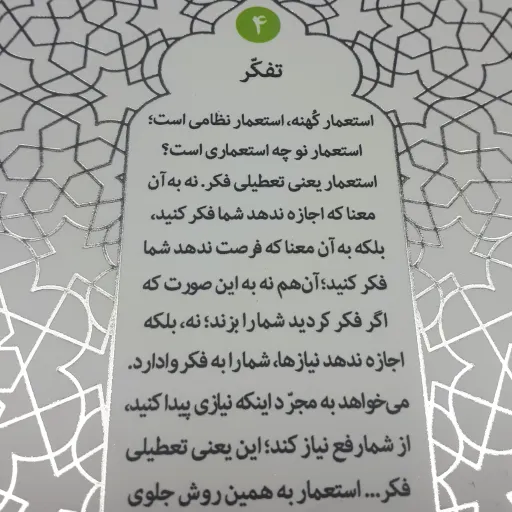 ۴
تفکّر
استعمار کُهنه، استعمار نظامی است؛
استعمار نو چه استعماری است؟
استعمار یعنی تعطیلی فکر. نه به آن
معنا که اجازه ندهد شما فکر کنید،
بلکه به آن معنا که فرصت ندهد شما
فکر کنید؛ آن‌هم نه به این صورت که
اگر فکر کردید شما را بزند؛ نه، بلکه
اجازه ندهد نیازها، شما را به فکر وادارد.
می‌خواهد به مجرّد اینکه نیازی پیدا کنید،
از شما رفع نیاز کند؛ این یعنی تعطیلی
فکر... استعمار به همین روش جلوی